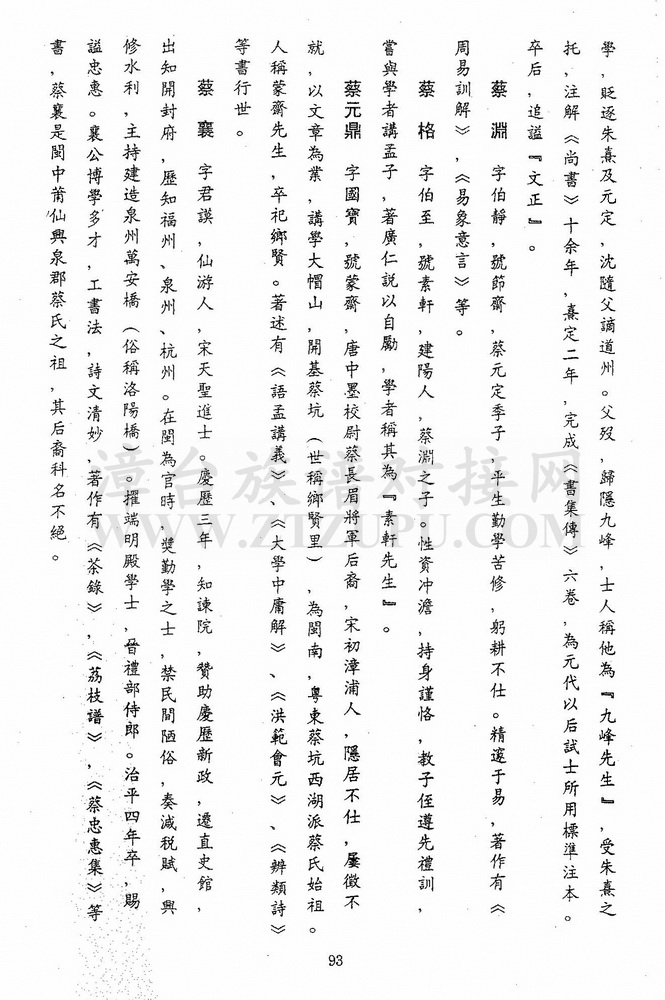 學，貶逐朱熹及元定，沈隨父謫道州。父歿，歸隱九峰，士人稱他為『九峰先生』，受朱熹之
托，注解《尚書》十余年，熹定二年，完成《書集傳》六卷，為元代以后試士所用標準注本。
卒后，追謚『文正』。
蔡淵　字伯靜，號節齋，蔡元定季子，平生勤學苦修，躬耕不仕。精邃于易，著作有《
周易訓解》，《易象意言》等。
蔡格　字伯至，號素軒，建陽人，蔡淵之子。性資冲澹，持身謹恪，教子侄遵先禮訓，
嘗與學者講孟子，著廣仁説以自勵，學者稱其為『素軒先生』。
蔡元鼎　字國寶，號蒙齋，唐中墨校尉蔡長眉將軍后裔，宋初漳浦人，隱居不仕，屢徵不
就，以文章為業，講學大帽山，開基蔡坑（世稱鄉賢里），為閩南，粵東蔡坑西湖派蔡氏始祖。
人稱蒙齋先生，卒祀鄉賢。著述有《語孟講義》、《大學中庸解》、《洪範會元》、《辨類詩》
等書行世。
蔡襄　字君謨，仙游人，宋天聖進士。慶歷三年，知諫院，贊助慶歷新政，遷直史館，
出知開封府，歷知福州、泉州、杭州。在閩為官時，奬勤學之士，禁民間陋俗，奏減税賦，興
修水利，主持建造泉州萬安橋（俗稱洛陽橋）。擢端明殿學士，晉禮部侍郎。治平四年卒，賜
謚忠惠。襄公博學多才，工書法，詩文清妙，著作有《茶錄》，《荔枝譜》，《蔡忠惠集》等
書，蔡襄是閩中莆仙興泉郡蔡氏之祖，其后裔科名不絕。
93
漳台族譜对接网
WWW.ZTZUPU.COM